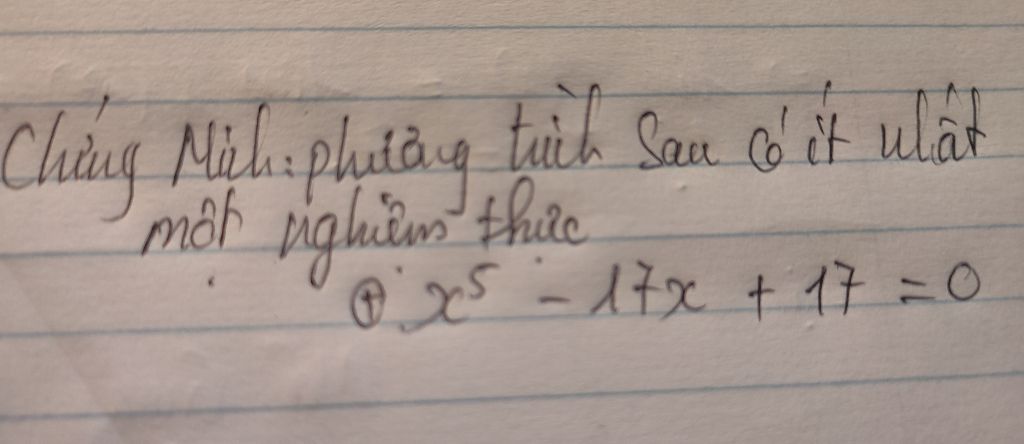 Chứng Minh: phương trình sau có ít nhất
một nghiệm thực
⊕ x⁵ - 17x + 17 = 0